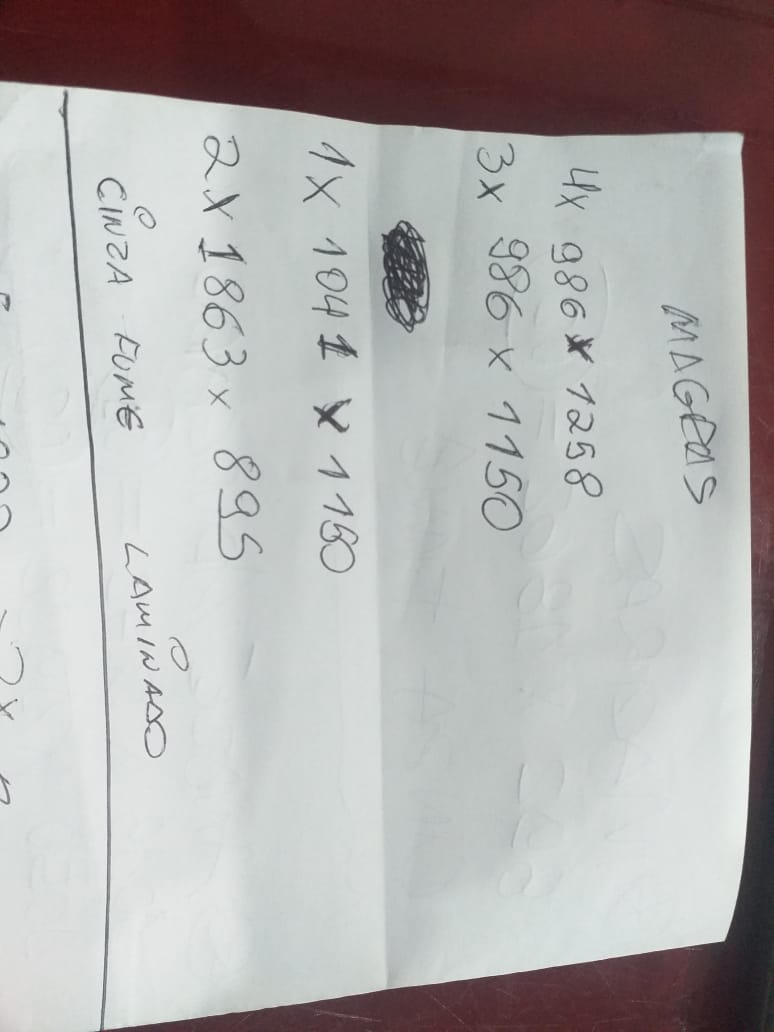 4x 986 x 1258
3x 986 x 1150
1x 1041 x 1150
2x 1863 x 895
CINZA FUMÊ LAMINADO